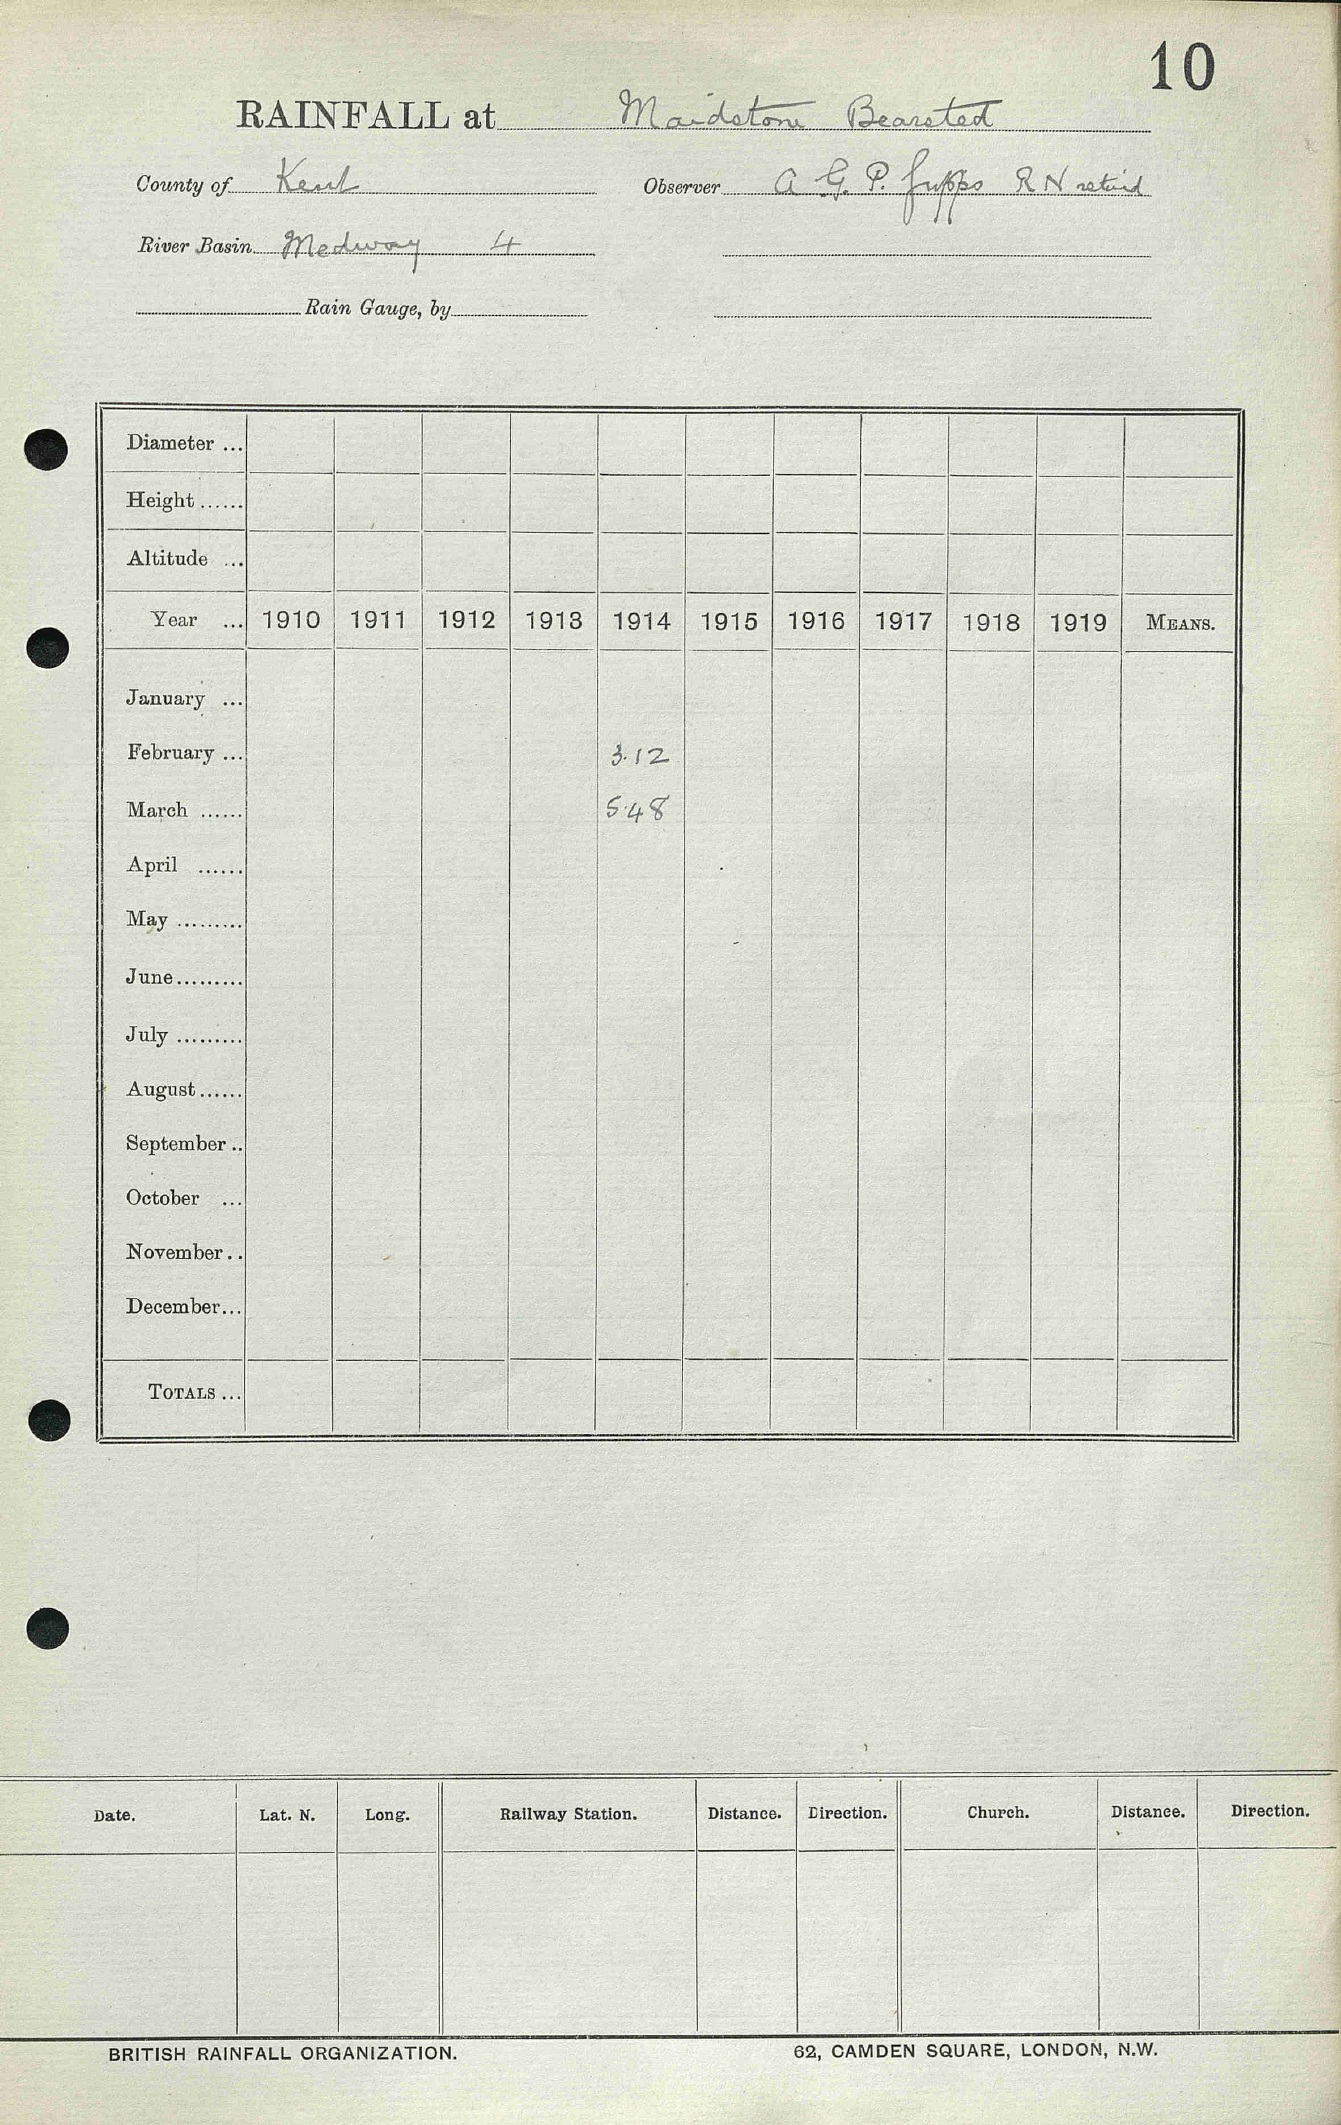 10
RAINFALL at Maidstone Bearsted
County of Kent Observer A G. P. RN retired
River Basin Medway 4
Rain Gauge, by
Diameter ...
Height ......
Altitude ...
Year ... 1910 1911 1912 1913 1914 1915 1916 1917 1918 1919 MEANS.
January ...
February ... 3.12
March ...... 5.48
April ......
May .........
June.........
July .........
August......
September ..
October ...
November..
December...
TOTALS ...
Date. Lat. N. Long. Railway Station. Distance. Direction. Church. Distance. Direction.
BRITISH RAINFALL ORGANIZATION. 62, CAMDEN SQUARE, LONDON, N.W.